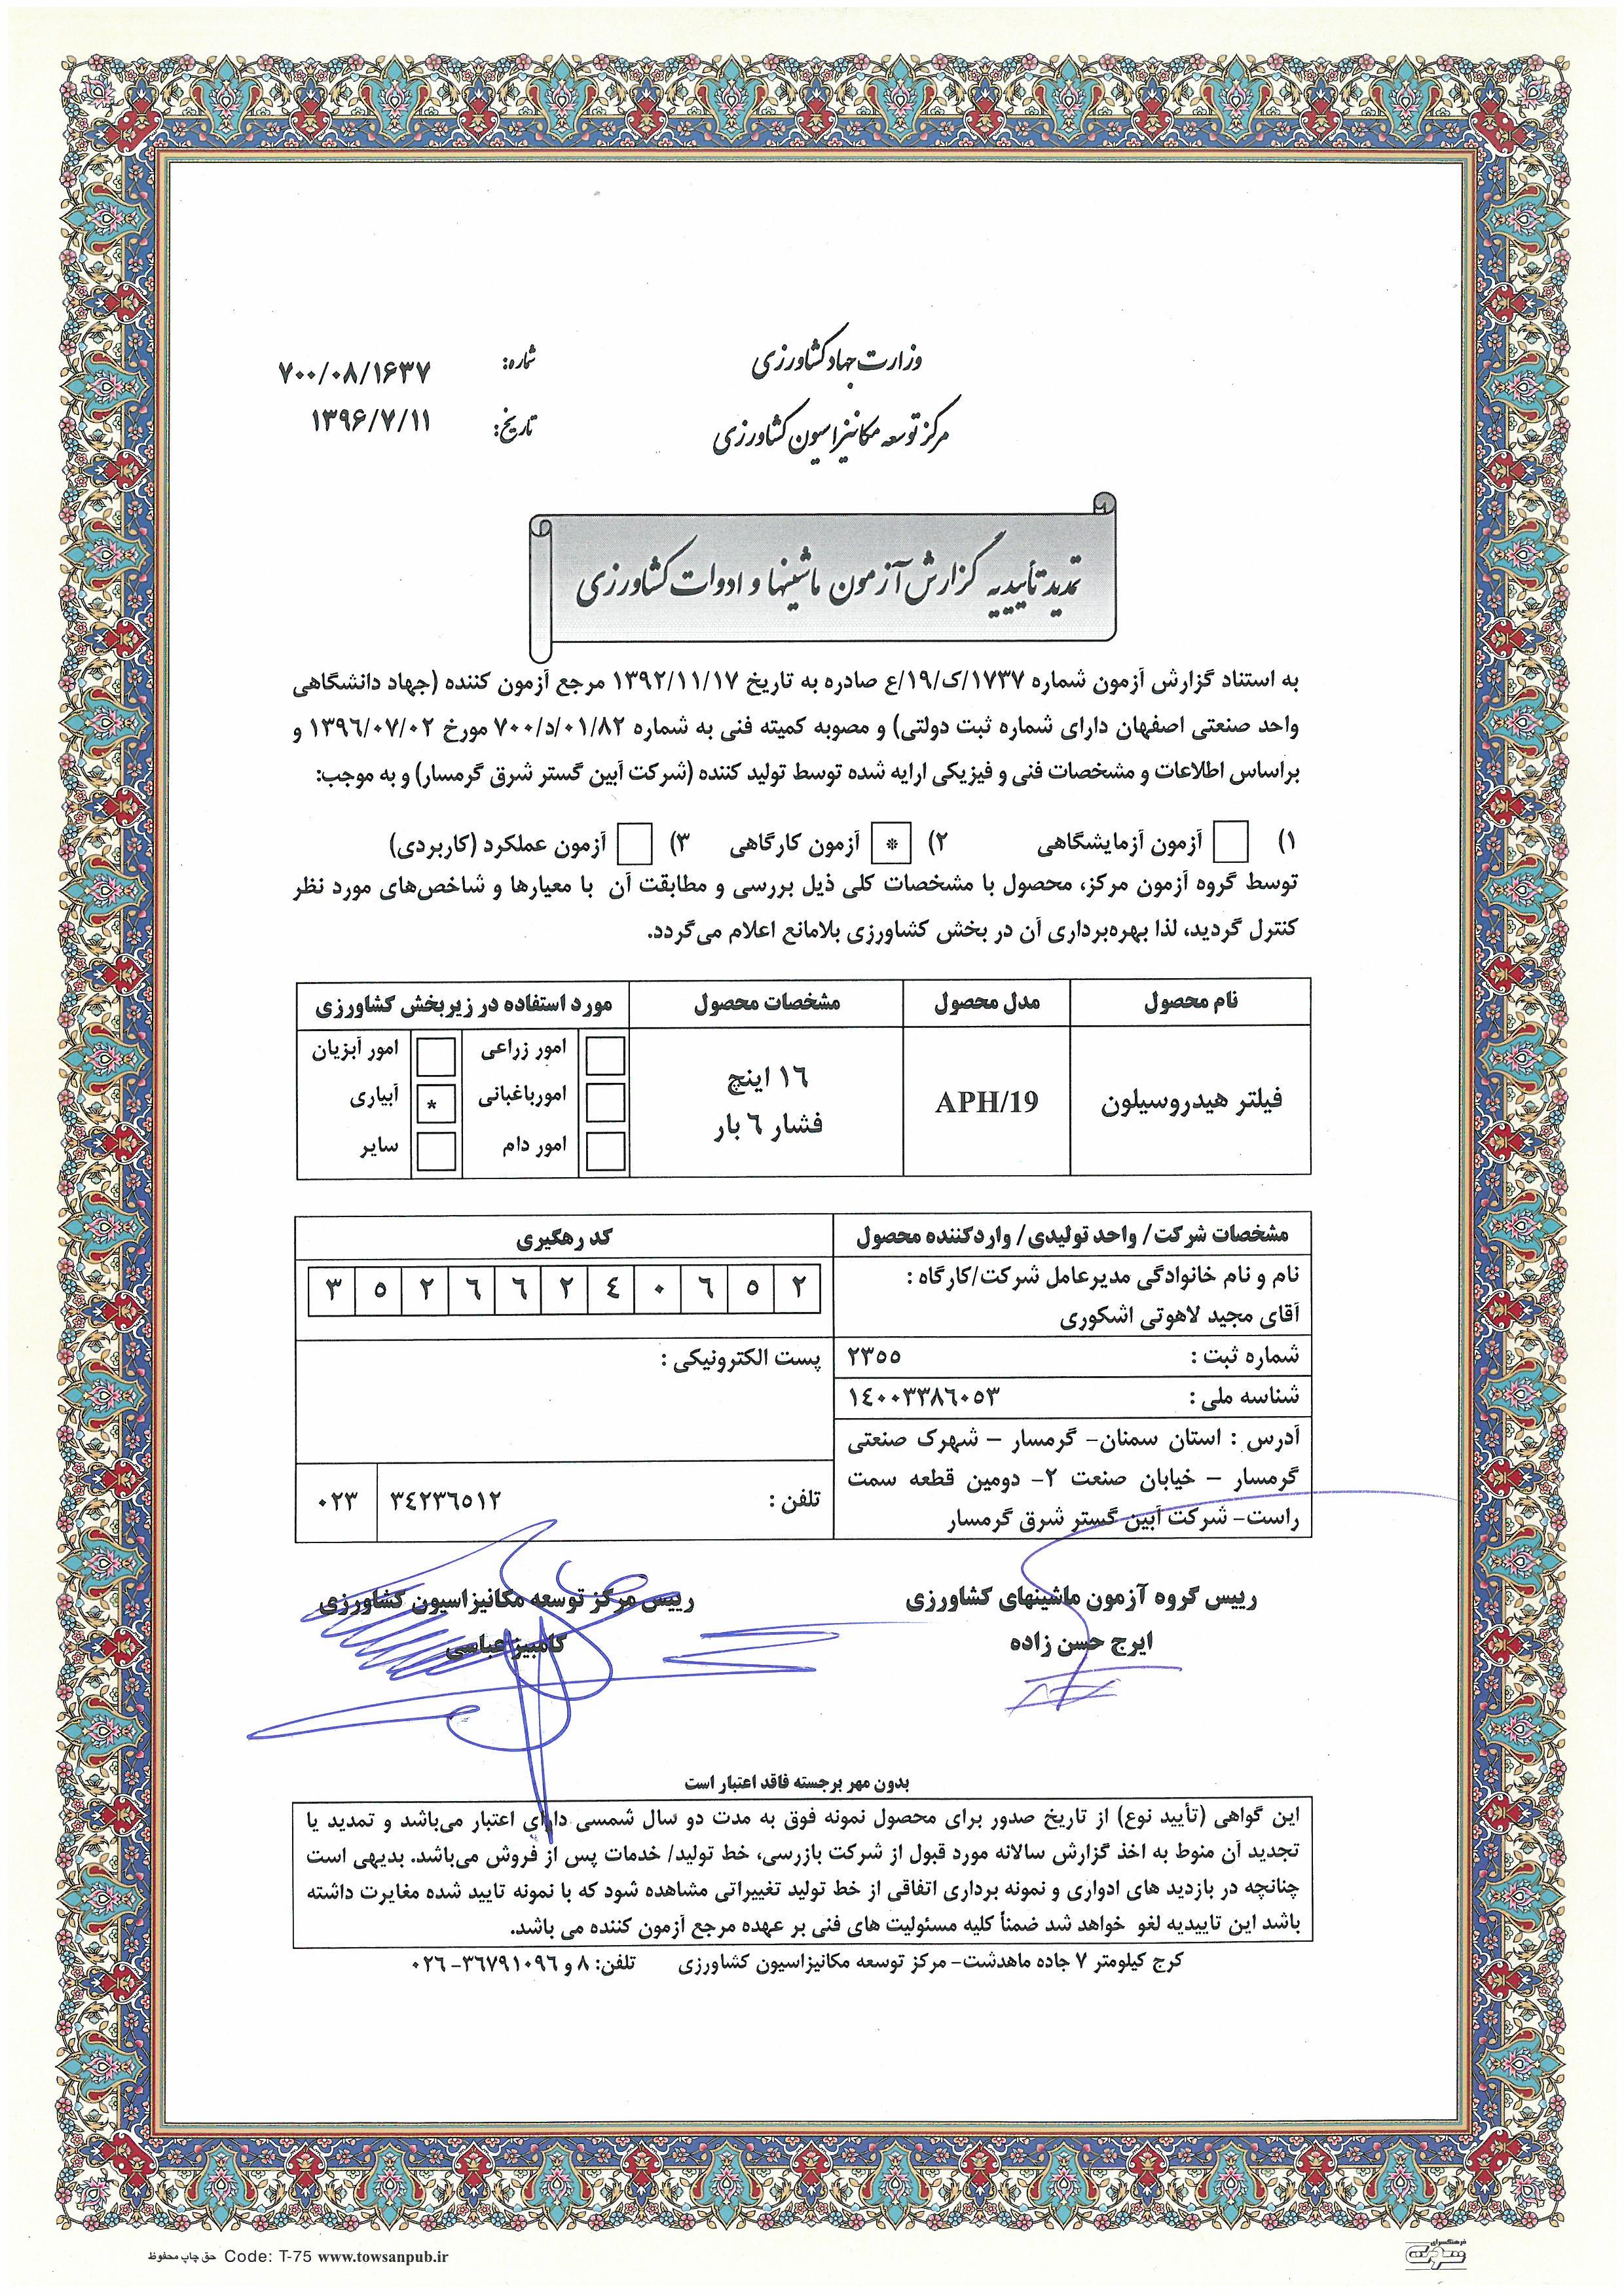 وزارت جهاد کشاورزی
مرکز توسعه مکانیزاسیون کشاورزی
شماره: ۷۰۰/۰۸/۱۶۳۷
تاریخ: ۱۳۹۶/۷/۱۱
تمدید تأییدیه گزارش آزمون ماشینها و ادوات کشاورزی
به استناد گزارش آزمون شماره ۱۷۳۷/ک/۱۹/ع صادره به تاریخ ۱۳۹۲/۱۱/۱۷ مرجع آزمون کننده (جهاد دانشگاهی
واحد صنعتی اصفهان دارای شماره ثبت دولتی) و مصوبه کمیته فنی به شماره ۷۰۰/د/۰۱/۸۲ مورخ ۱۳۹۶/۰۷/۰۲ و
براساس اطلاعات و مشخصات فنی و فیزیکی ارایه شده توسط تولید کننده (شرکت آبین گستر شرق گرمسار) و به موجب:
۱) آزمون آزمایشگاهی ۲) * آزمون کارگاهی ۳) آزمون عملکرد (کاربردی)
توسط گروه آزمون مرکز، محصول با مشخصات کلی ذیل بررسی و مطابقت آن با معیارها و شاخص‌های مورد نظر
کنترل گردید، لذا بهره‌برداری آن در بخش کشاورزی بلامانع اعلام می‌گردد.
نام محصول مدل محصول مشخصات محصول مورد استفاده در زیربخش کشاورزی
فیلتر هیدروسیلون APH/19
۱۶ اینچ
فشار ۶ بار
امور زراعی امور آبزیان
امورباغبانی * آبیاری
امور دام سایر
مشخصات شرکت/ واحد تولیدی/ واردکننده محصول کد رهگیری
نام و نام خانوادگی مدیرعامل شرکت/کارگاه :
آقای مجید لاهوتی اشکوری
۳ ۵ ۲ ۶ ۶ ۲ ۴ ۰ ۶ ۵ ۲
شماره ثبت : ۲۳۵۵ پست الکترونیکی :
شناسه ملی : ۱۴۰۰۳۳۸۶۰۵۳
آدرس : استان سمنان- گرمسار – شهرک صنعتی
گرمسار – خیابان صنعت ۲- دومین قطعه سمت
راست- شرکت آبین گستر شرق گرمسار
تلفن : ۳۴۲۳۶۵۱۲ ۰۲۳
رییس گروه آزمون ماشینهای کشاورزی
ایرج حسن زاده
رییس مرکز توسعه مکانیزاسیون کشاورزی
کامبیز عباسی
بدون مهر برجسته فاقد اعتبار است
این گواهی (تأیید نوع) از تاریخ صدور برای محصول نمونه فوق به مدت دو سال شمسی دارای اعتبار می‌باشد و تمدید یا
تجدید آن منوط به اخذ گزارش سالانه مورد قبول از شرکت بازرسی، خط تولید/ خدمات پس از فروش می‌باشد. بدیهی است
چنانچه در بازدید های ادواری و نمونه برداری اتفاقی از خط تولید تغییراتی مشاهده شود که با نمونه تایید شده مغایرت داشته
باشد این تاییدیه لغو خواهد شد ضمناً کلیه مسئولیت های فنی بر عهده مرجع آزمون کننده می باشد.
کرج کیلومتر ۷ جاده ماهدشت- مرکز توسعه مکانیزاسیون کشاورزی تلفن: ۸ و ۳۶۷۹۱۰۹۶-۰۲۶
حق چاپ محفوظ Code: T-75 www.towsanpub.ir